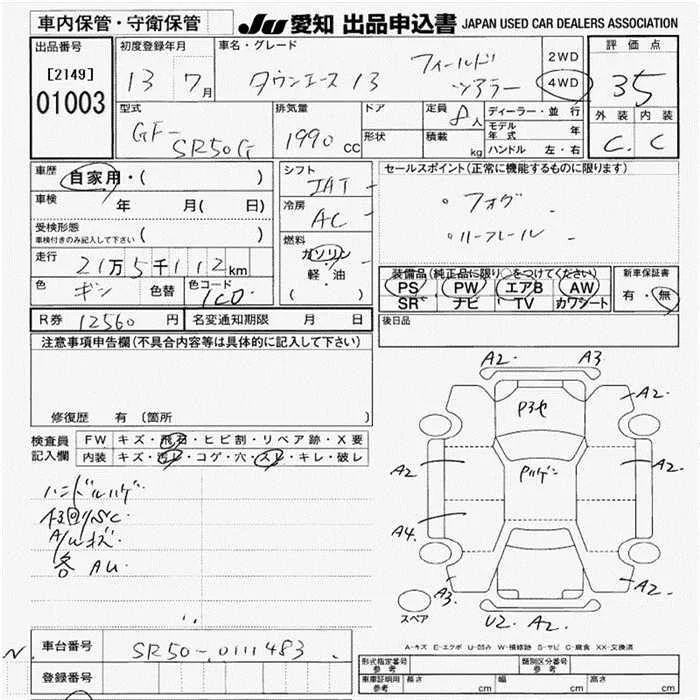 車内保管・守衛保管 JU 愛知 出品申込書 JAPAN USED CAR DEALERS ASSOCIATION
出品番号 [2149] 01003
初度登録年月 13 7月
車名・グレード タウンエース 13 フィールドツアラー
2WD 4WD
評価点 35
外装 内装
C. C
型式 GF-SR50G
排気量 1990 cc
ドア 形状
定員 8人
積載 kg
ディーラー・並行
モデル年式 年
ハンドル 左・右
車歴 自家用・( )
車検 年 月( 日)
受検形態
車検付きのみ記入して下さい ( )
走行 21万5千112km
色 ギン 色替 色コード 1C0
シフト IAT
冷房 AC
燃料 ガソリン
軽・油
( )
セールスポイント(正常に機能するものに限ります)
・フォグ
・ルーフレール
装備品(純正品に限り○をつけてください)
PS PW エアB AW
SR ナビ TV カワシート
新車保証書
有・無
R券 12560円 名変通知期限 月 日
後日品
注意事項申告欄(不具合内容等は具体的に記入して下さい)
修復歴 有 (箇所 )
検査員記入欄
FW キズ・飛石・ヒビ割・リペア跡・X要
内装 キズ・汚レ・コゲ・穴・スレ・キレ・破レ
ハンドルハゲ
下回りSC
A/Wキズ
各AU
A2. A3
A2. A2.
P3ヤ
Pハゲ
A2 A2.
A4.
A3. A2.
U2. A2.
スペア
A-キズ E-エクボ U-凹み W-補修跡 S-サビ C-腐食 XX-交換済
N. 車台番号 SR50-0111483
登録番号
形式指定番号 参考 類別区分番号 参考
車庫証明用 参考 長さ cm 幅 cm 高さ cm